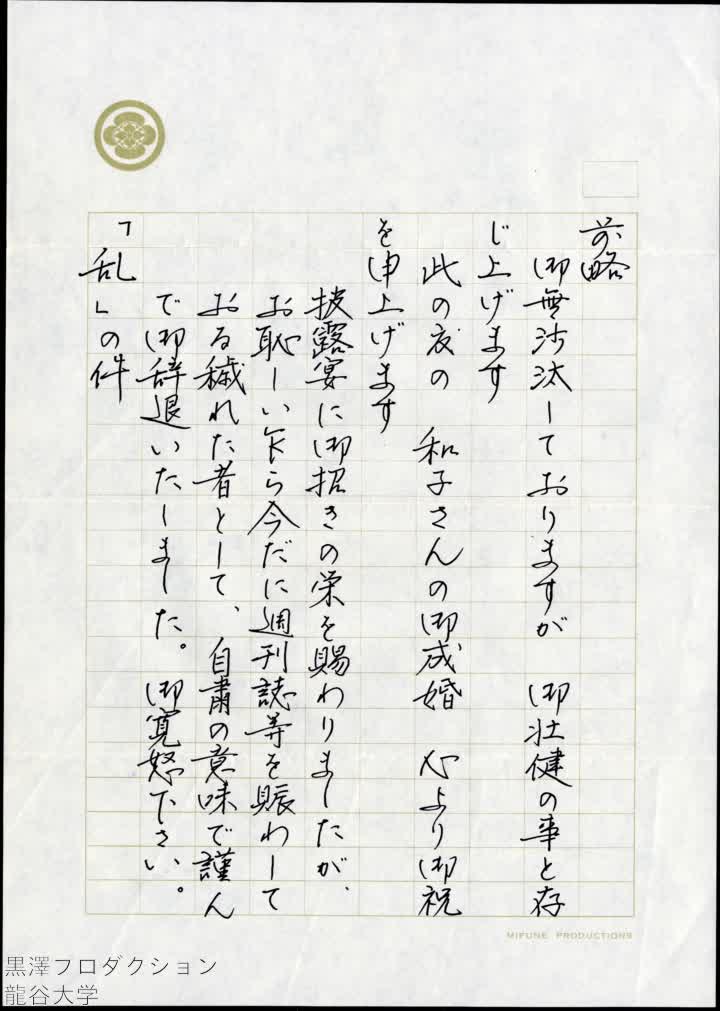 前略
御無沙汰しておりますが　御壮健の事と存
じ上げます
此の度の　和子さんの御成婚　心より御祝
を申上げます
披露宴に御招きの栄を賜わりましたが、
お恥しい乍ら今だに週刊誌等を賑わして
おる穢れた者として、自粛の意味で謹ん
で御辞退いたしました。御寛怒下さい。
「乱」の件
MIFUNE PRODUCTIONS
黒澤プロダクション
龍谷大学